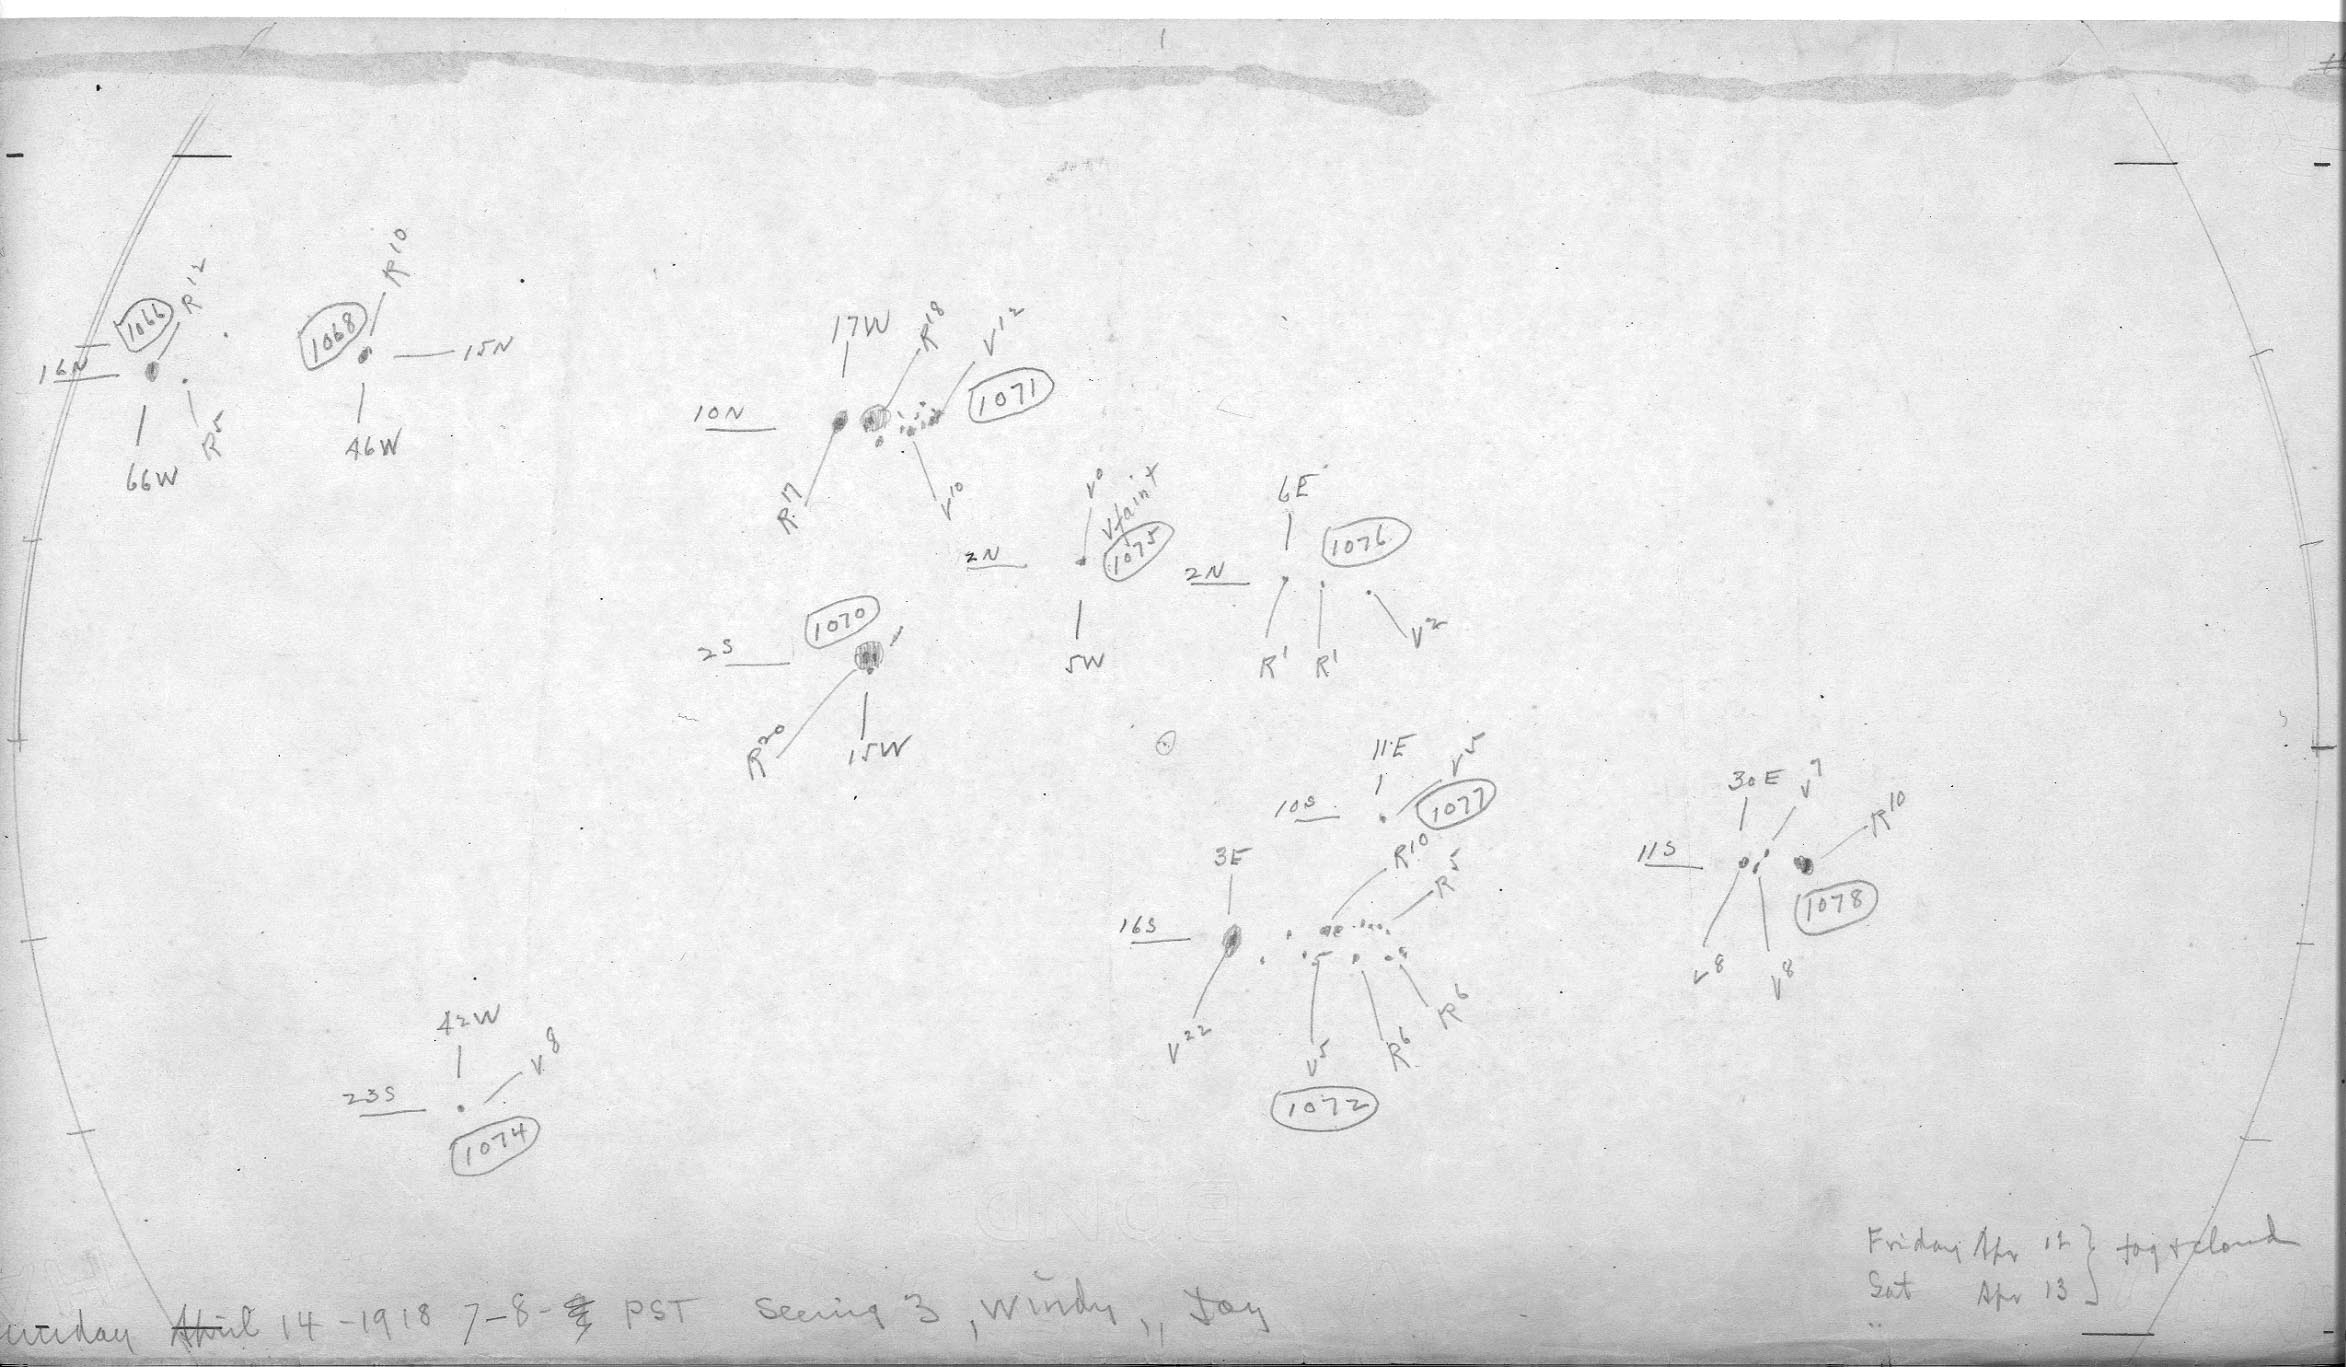 R12
1066
16N
R5
66W
R10
1068
15N
46W
17W
R18
V12
1071
10N
R17
V10
V0
Vfaint
1075
2N
5W
6E
1076
2N
R1
R1
V2
1070
2S
R20
15W
11E
V5
10S
1077
3E
R10
R5
16S
V22
V5
R6
R6
1072
30E
V7
R10
11S
1078
V8
V8
42W
V8
23S
1074
BOND
Friday Apr 12 } fog + cloud
Sat Apr 13
April 14-1918 7-8- PST Seeing 3, Windy,